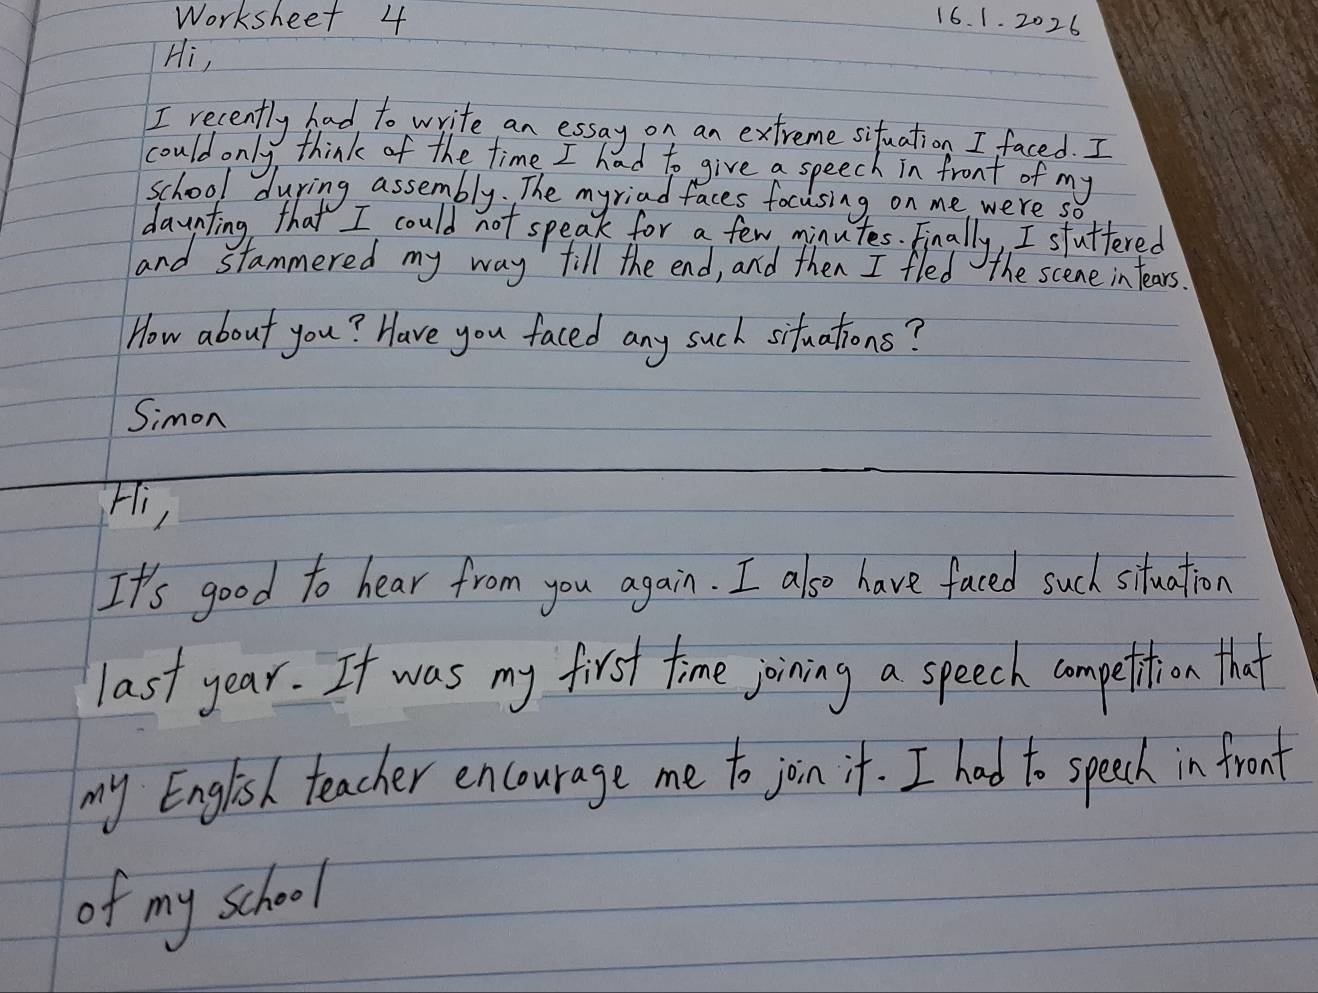 Worksheet 4 16.1.2026
Hi,
I recently had to write an essay on an extreme situation I faced. I
could only think of the time I had to give a speech in front of my
school during assembly. The myriad faces focusing on me were so
daunting that I could not speak for a few minutes. Finally, I stuttered
and stammered my way till the end, and then I fled the scene in tears.
How about you? Have you faced any such situations?
Simon
Hi,
It's good to hear from you again. I also have faced such situation
last year. It was my first time joining a speech competition that
my English teacher encourage me to join it. I had to speech in front
of my school